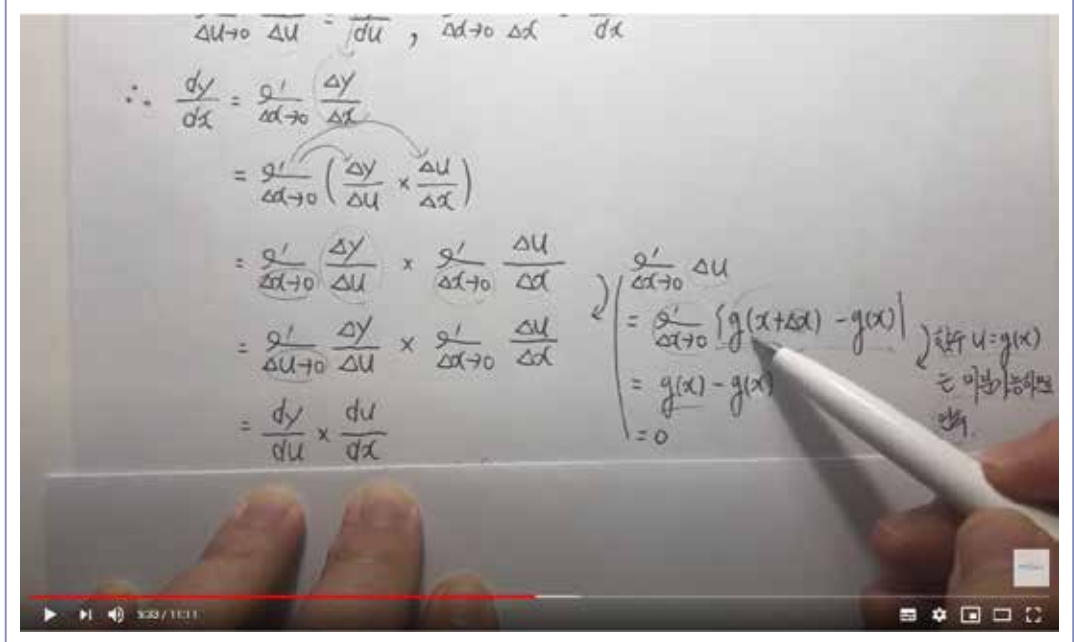 ΔU→0 ΔU = du , Δx→0 Δx = dx
∴ dy/dx = lim Δx→0 Δy/Δx
= lim Δx→0 (Δy/Δu × Δu/Δx)
= lim Δx→0 Δy/Δu × lim Δx→0 Δu/Δx
= lim Δu→0 Δy/Δu × lim Δx→0 Δu/Δx
= dy/du × du/dx
lim Δx→0 Δu
= lim Δx→0 {g(x+Δx) - g(x)}
= g(x) - g(x)
= 0
함수 u=g(x)
는 미분가능하므로
연속.
5:33 / 11:11